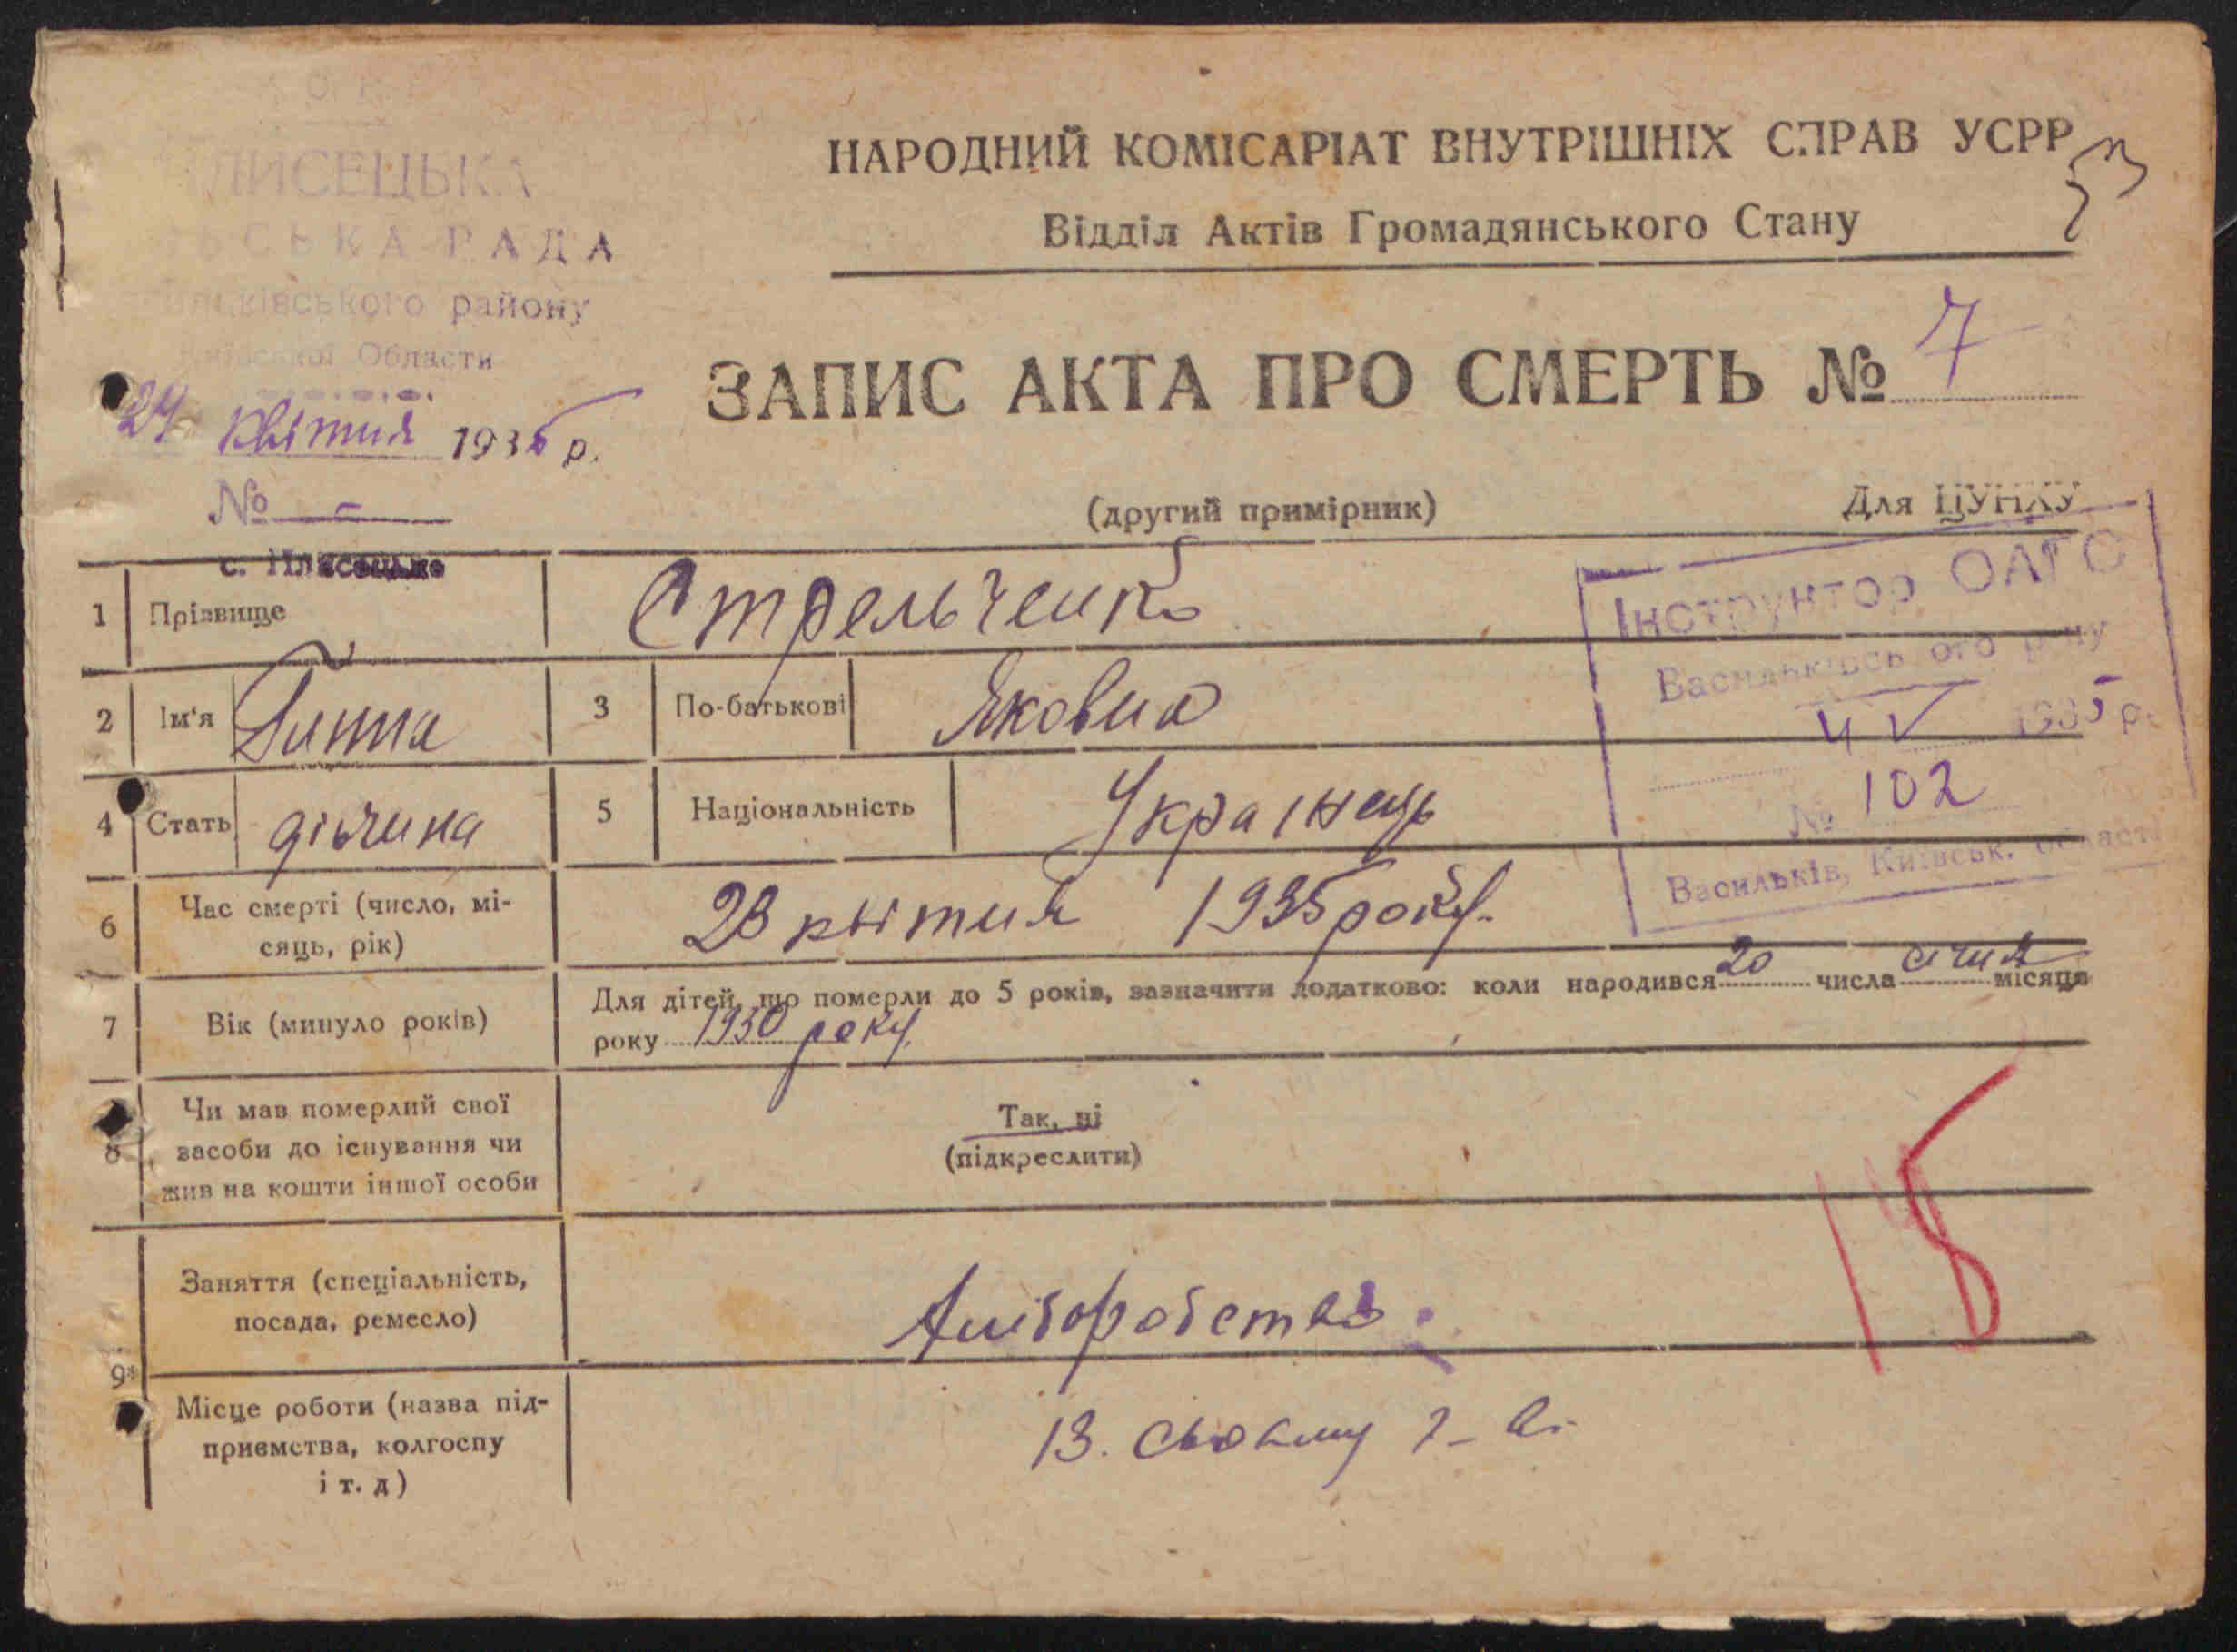 ЛИСЕЦЬКА
СЬКА РАДА
ківського району
Київської Области
24 квітня 1935 р.
№ -
с. Плисецьке
НАРОДНИЙ КОМІСАРІАТ ВНУТРІШНІХ СПРАВ УСРР
53
Відділ Актів Громадянського Стану
ЗАПИС АКТА ПРО СМЕРТЬ № 7
(другий примірник)
Для ЦУНХУ
Інструктор ОАГС
Васильківського р-ну
4 V 1935 р.
№ 102
Васильків, Київськ. області
1 Прізвище Стрельченко
2 Ім'я 3 По-батькові Яковна
4 Стать дівчина 5 Національність Українець
6 Час смерті (число, мі-
сяць, рік) 23 квітня 1935 року.
7 Вік (минуло років) Для дітей, що померли до 5 років, зазначити додатково: коли народився 20 числа січня місяця
року 1930 року
8 Чи мав померлий свої
засоби до існування чи
жив на кошти іншої особи
Так, ні
(підкреслити)
18
9* Заняття (спеціальність,
посада, ремесло)
Хліборобство.
Місце роботи (назва під-
приємства, колгоспу
і т. д)